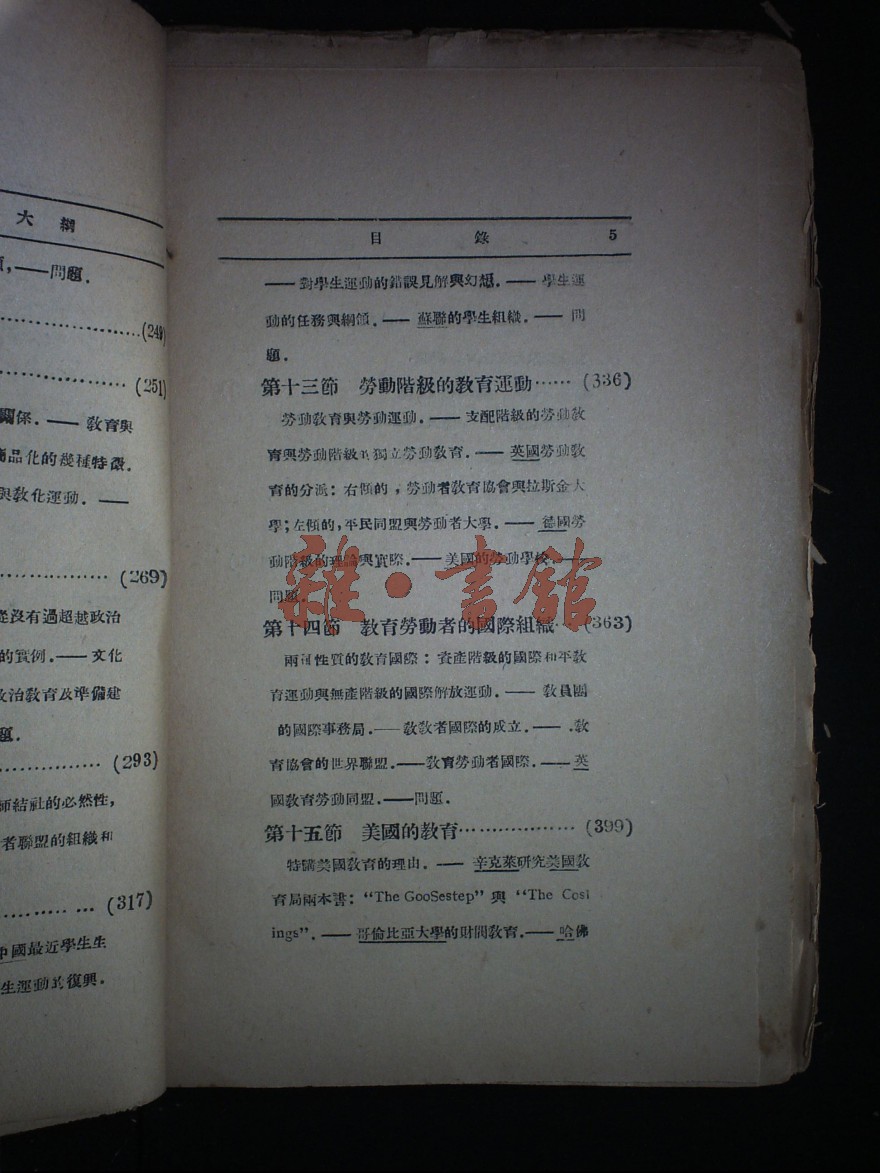 大綱
,——問題.
(249)
(251)
關係.—— 教育與
商品化的幾種特徵.
與教化運動. ——
(269)
從沒有過超越政治
的實例.—— 文化
政治教育及準備建
題.
(293)
師結社的必然性,
者聯盟的組織和
(317)
中國最近學生生
生運動的復興.
目錄 5
—— 對學生運動的錯誤見解與幻想. —— 學生運
動的任務與綱領. —— 蘇聯的學生組織. —— 問
題.
第十三節 勞動階級的教育運動…… (336)
勞動教育與勞動運動. —— 支配階級的勞動教
育與勞動階級的獨立勞動教育. —— 英國勞動教
育的分派: 右傾的, 勞動者教育協會與拉斯金大
學; 左傾的, 平民同盟與勞動者大學. —— 德國勞
動階級的理論與實際. —— 美國的勞動學校. ——
問題.
第十四節 教育勞動者的國際組織… (363)
兩種性質的教育國際: 資產階級的國際和平教
育運動與無產階級的國際解放運動. —— 教員團
的國際事務局. —— 教教者國際的成立. —— .教
育協會的世界聯盟. —— 教育勞動者國際. —— 英
國教育勞動同盟. —— 問題.
第十五節 美國的教育……………… (399)
特講美國教育的理由. —— 辛克萊研究美國教
育局兩本書: “The GooSestep” 與 “The Gosl
ings”. —— 哥倫比亞大學的財閥教育. —— 哈佛
雜·書館